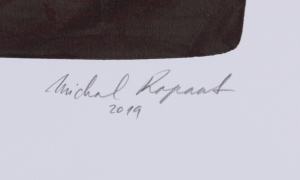 Michal Rapaat
2019